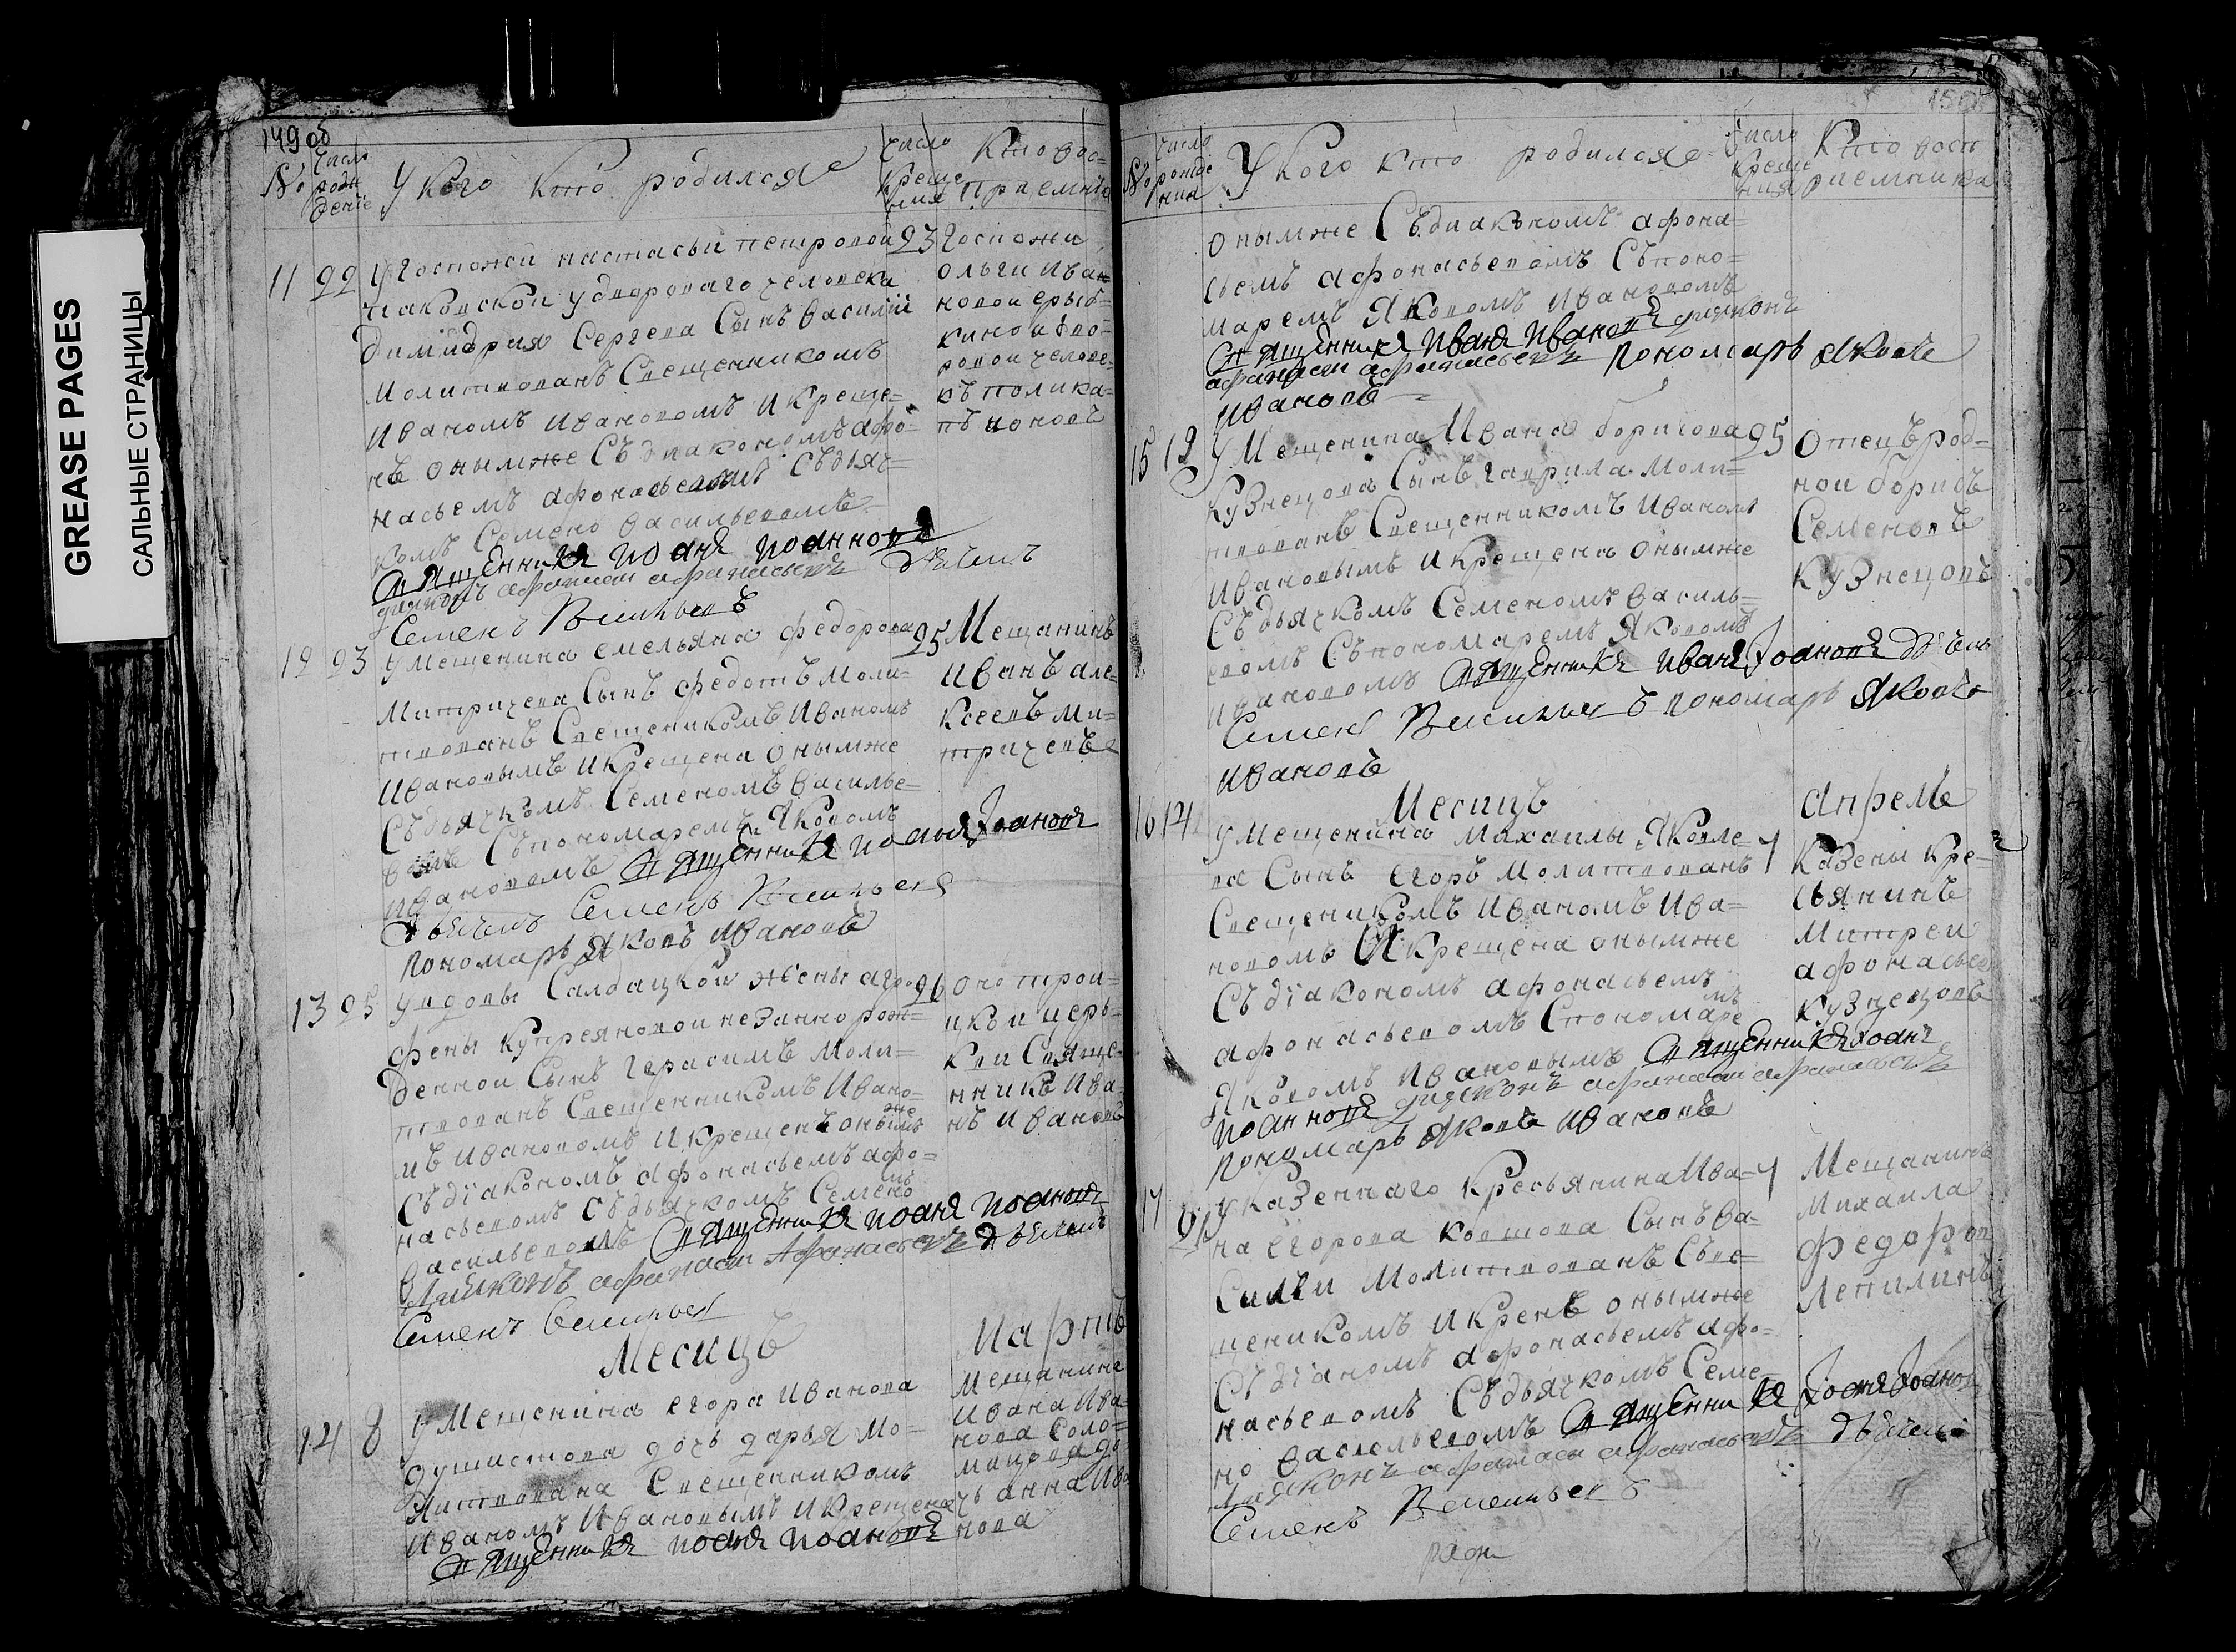 GREASE PAGES
САЛЬНЫЕ СТРАНИЦЫ
149об
№ Число рожденiе У кого кто родился Число крещения Кто восприемники
11 22 У Госпожи настасьи петровой 23
чаковской у дворового человека
димидрия Сергева Сынъ василий
молитвованъ Свещенникомъ
иваномъ ивановомъ и креще=
нъ онымже Съдиакономъ афо=
насьемъ афонасьевымъ Съдьяч=
комъ Семено васильевомъ
Священникъ иоанъ иоанновъ
диаконъ афанасiй афанасьевъ дьячекъ
Семенъ Васильевъ
Госпожи
ольги иван
новой
кино дво=
ровой челове=
къ полика=
пъ ионовъ
12 23 У мещенина емельяна федорова 25
митричева Сынъ федотъ моли=
твованъ Свещеникомъ иваномъ
ивановымъ и крещена онымже
Съдьячкомъ Семеномъ василье=
вомъ Съпономаремъ Яковомъ
ивановомъ Священникъ иоанъ Iоановъ
дьячекъ Семенъ Васильевъ
пономарь Яковъ ивановъ
Мещанинъ
иванъ але=
ксеевъ ми=
тричевъ
13 25 У вдовы Салдацкой жены агро 26
фены купреяновой незаннорож=
денной Сынъ герасимъ моли=
твованъ Свещенникомъ ивано=
мъ ивановомъ и крещенъ онымже
Съдiакономъ афонасьемъ афо=
насьевомъ Съдьячкомъ Семеномъ
васильевомъ Священникъ иоанъ иоановъ
диаконъ афанасiй Афанасьевъ дьячекъ
Семенъ Васильевъ
оно трои=
цкой церь=
кви Свяще=
нникъ ива=
нъ ивановъ
Месицъ Мартъ
14 8 У Мещенина егора иванова
душистова дочь дарья мо=
литвована Свещенникомъ
иваномъ ивановымъ и крещена
Священникъ иоанъ иоановъ
мещанина
ивана ива
нова Соло=
мацова до
чь анна ива
нова
150
№ Число рождения У кого кто родился Число крещения Кто восприемники
онымже Съдиакономъ афона=
сьемъ афонасьевомъ Съпоно=
маремъ Яковомъ ивановомъ
Священникъ Иванъ Ивановъ диаконъ
афанасiй афанасьевъ пономарь Яковъ
ивановъ
15 19 У Мещенина Ивана борисова 25
кузнецова Сынъ гаврила моли=
твованъ Свещенникомъ иваномъ
ивановымъ и крещена онымже
Съдьячкомъ Семеномъ василь=
евомъ Съпономаремъ Яковомъ
ивановомъ Священникъ иванъ Iоановъ дьячекъ
Семенъ Васильевъ пономарь Яковъ
ивановъ
отецъ род=
ной борисъ
Семеновъ
кузнецовъ
Месицъ апрель
16 14 У мещенина михаилы Яковле= 1
ва Сынъ егоръ молитвованъ
Свещеникомъ иваномъ ива=
новомъ И крещена онымже
Съдiакономъ афонасьемъ
афонасьевомъ Спономаремъ
Яковомъ ивановымъ Священникъ Iоанъ
иоанновъ диаконъ афанасiй афанасьевъ
пономарь Яковъ ивановъ
казены кре=
сьянинъ
митрей
афонасьев
кузнецовъ
17 У казеннаго кресьянина Ива= 1
на егорова ковшова Сынъ ва=
Силей молитвованъ Съве=
щеникомъ и кренъ онымже
Съдiаномъ афонасьемъ афо=
насьевомъ Съдьячкомъ Семе
но васильевомъ Священникъ Iоанъ Iоанов
диаконъ афанасiй афанасьевъ дьячекъ
Семенъ Васильевъ
Мещанинъ
михаила
федоров
Лепилинъ